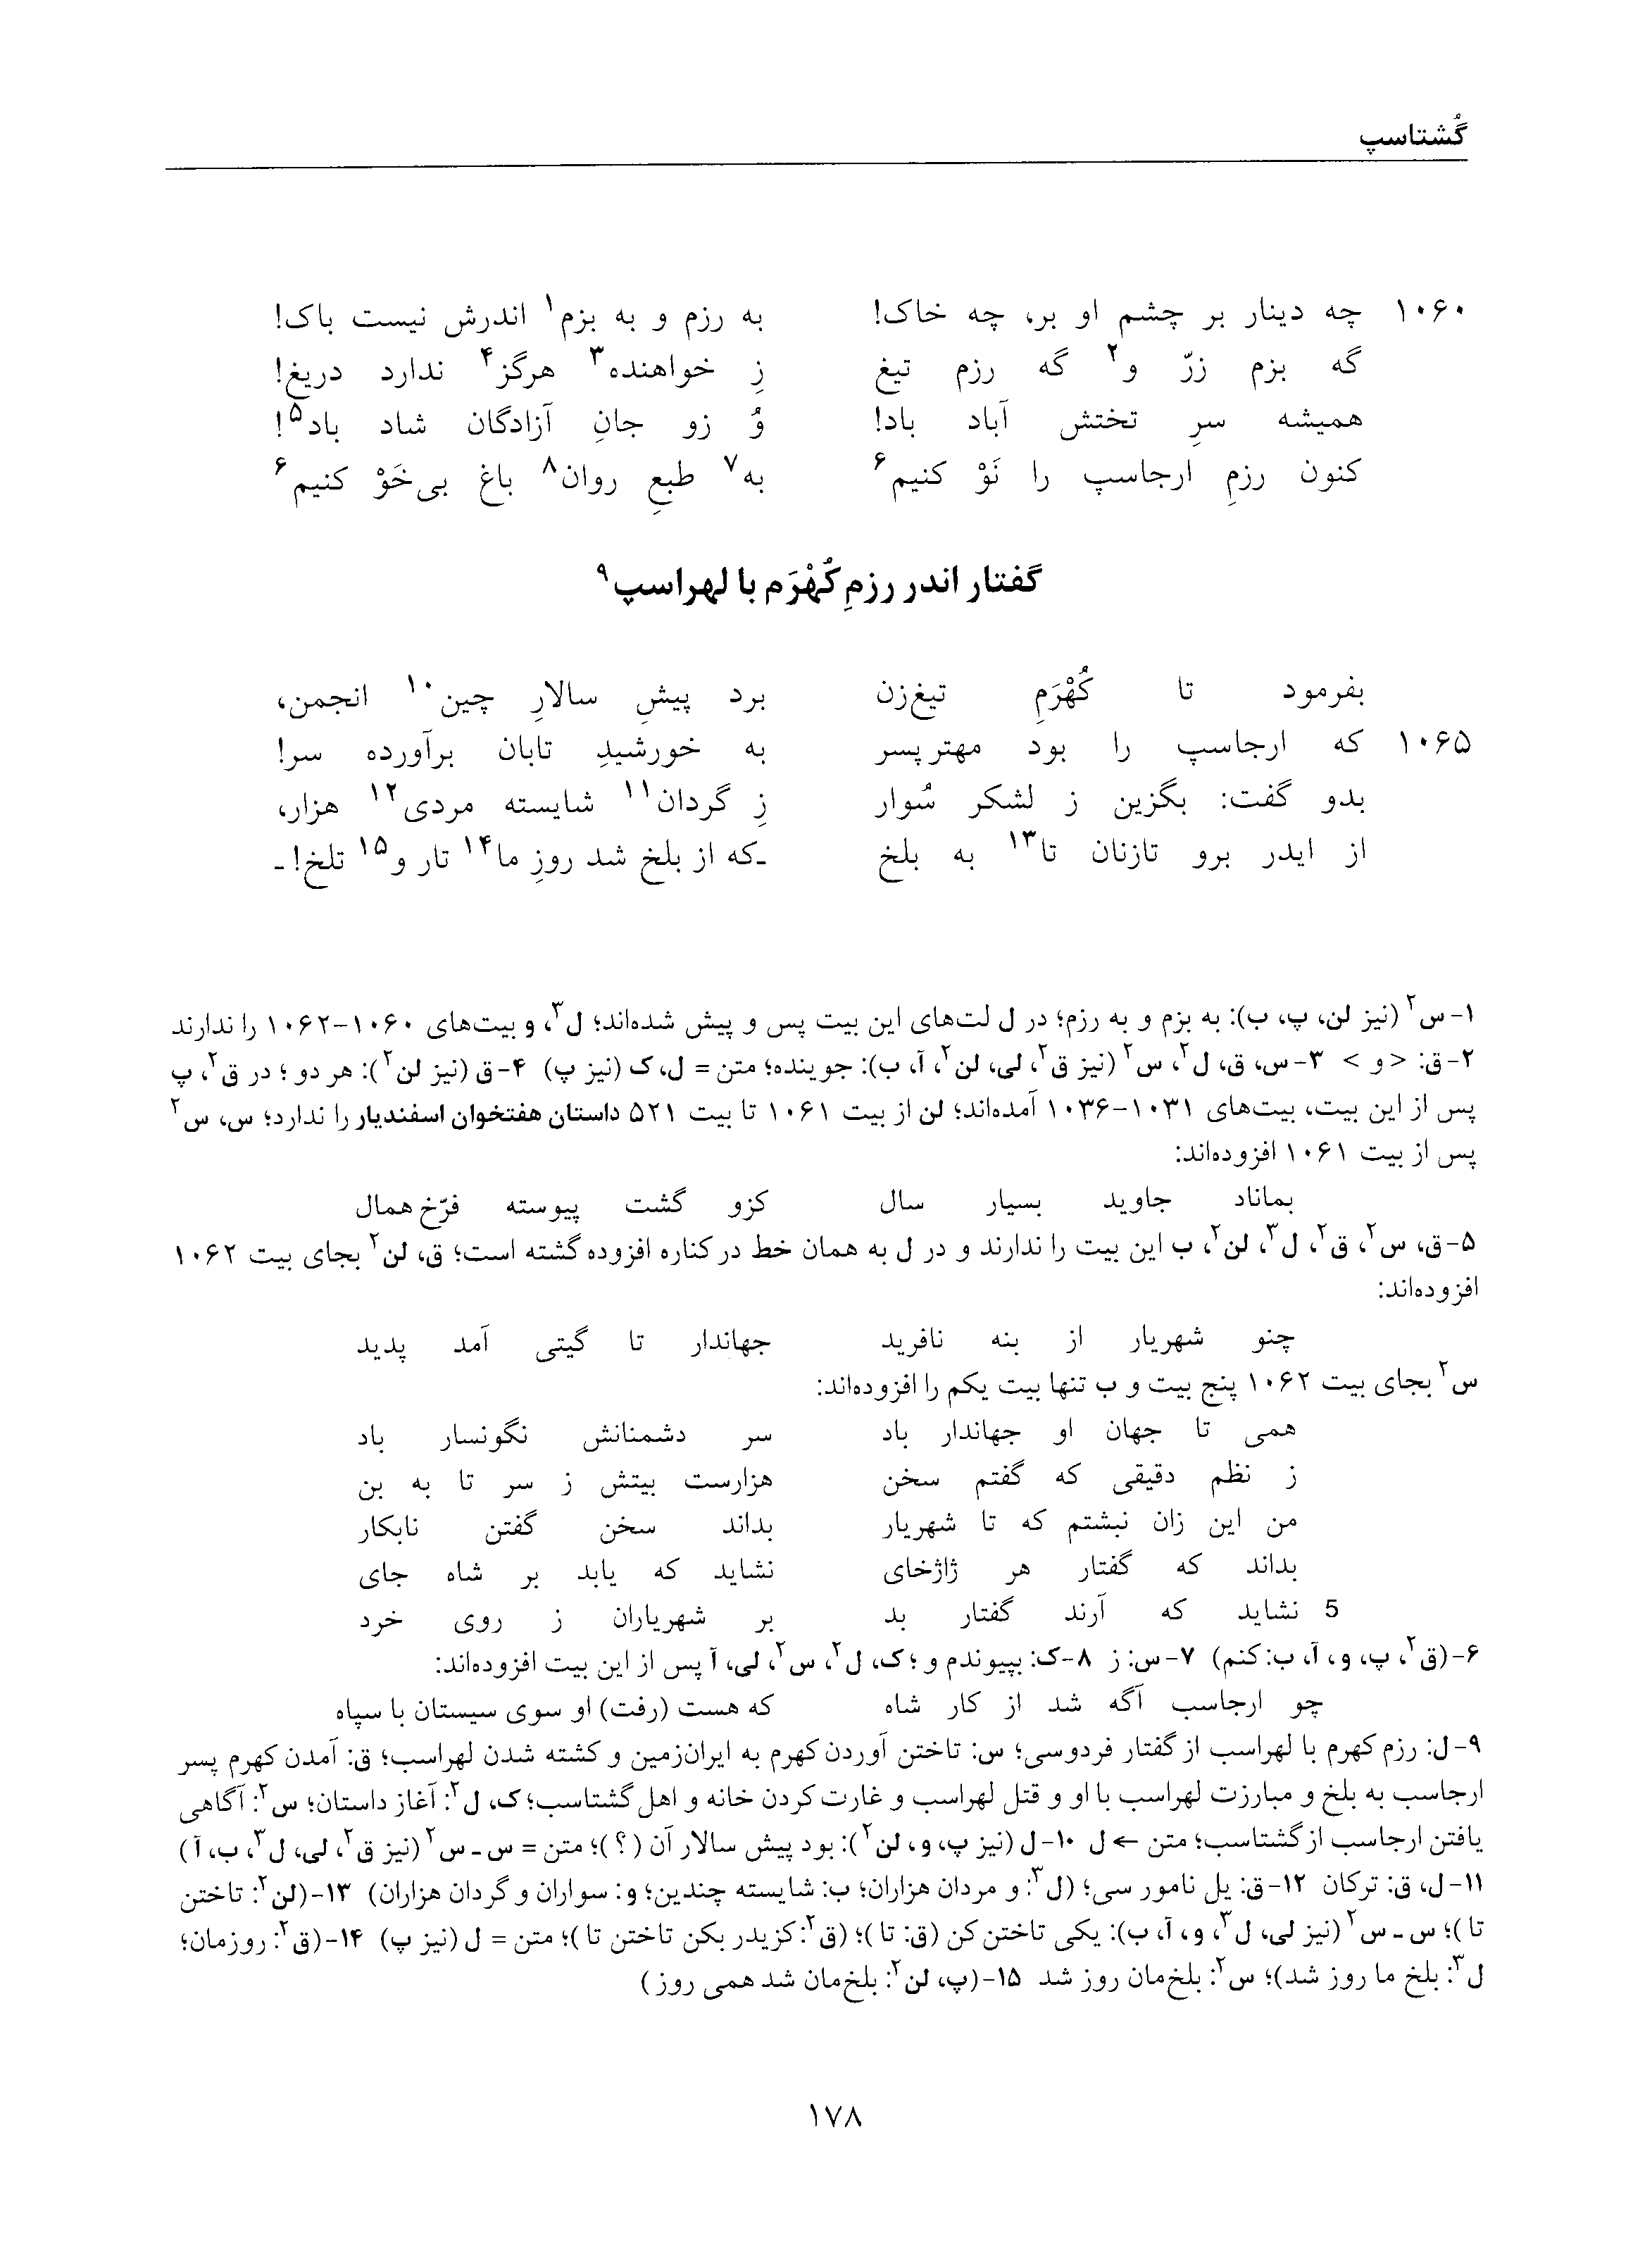 گُشتاسپ
۱۰۶۰ چه دینار بر چشم او بر، چه خاک! به رزم و به بزم۱ اندرش نیست باک!
گه بزم زرّ و۲ گه رزم تیغ زِ خواهنده۳ هرگز۴ ندارد دریغ!
همیشه سرِ تختش آباد باد! وُ زو جانِ آزادگان شاد باد۵!
کنون رزمِ ارجاسپ را نَوْ کنیم۶ به۷ طبعِ روان۸ باغ بی‌خَوْ کنیم۶
گفتار اندر رزمِ کُهْرَم با لهراسپ۹
بفرمود تا کُهْرَمِ تیغ‌زن برد پیشِ سالارِ چین۱۰ انجمن،
۱۰۶۵ که ارجاسپ را بود مهتر پسر به خورشیدِ تابان برآورده سر!
بدو گفت: بگزین ز لشکر سُوار زِ گردان۱۱ شایسته مردی۱۲ هزار،
از ایدر برو تازنان تا۱۳ به بلخ ـ که از بلخ شد روزِ ما۱۴ تار و۱۵ تلخ! ـ
۱- س۲ (نیز لن، پ، ب): به بزم و به رزم؛ در ل لت‌های این بیت پس و پیش شده‌اند؛ ل۳، و بیت‌های ۱۰۶۰-۱۰۶۲ را ندارند
۲- ق: <و> ۳- س، ق، ل۲، س۲ (نیز ق۲، لی، لن۲، آ، ب): جوینده؛ متن = ل، ک (نیز پ) ۴- ق (نیز لن۲): هر دو؛ در ق۲، پ
پس از این بیت، بیت‌های ۱۰۳۱-۱۰۳۶ آمده‌اند؛ لن از بیت ۱۰۶۱ تا بیت ۵۲۱ داستان هفتخوان اسفندیار را ندارد؛ س، س۲
پس از بیت ۱۰۶۱ افزوده‌اند:
بماناد جاوید بسیار سال کزو گشت پیوسته فرّخ همال
۵- ق، س۲، ق۲، ل۳، لن۲، ب این بیت را ندارند و در ل به همان خط در کناره افزوده گشته است؛ ق، لن۲ بجای بیت ۱۰۶۲
افزوده‌اند:
چنو شهریار از بنه نافرید جهاندار تا گیتی آمد پدید
س۲ بجای بیت ۱۰۶۲ پنج بیت و ب تنها بیت یکم را افزوده‌اند:
همی تا جهان او جهاندار باد سر دشمنانش نگونسار باد
ز نظم دقیقی که گفتم سخن هزارست بیتش ز سر تا به بن
من این زان نبشتم که تا شهریار بداند سخن گفتن نابکار
بداند که گفتار هر ژاژخای نشاید که یابد بر شاه جای
5 نشاید که آرند گفتار بد بر شهریاران ز روی خرد
۶- (ق۲، پ، و، آ، ب: کنم) ۷- س: ز ۸- ک: بپیوندم و؛ ک، ل۲، س۲، لی، آ پس از این بیت افزوده‌اند:
چو ارجاسب آگه شد از کار شاه که هست (رفت) او سوی سیستان با سپاه
۹- ل: رزم کهرم با لهراسب از گفتار فردوسی؛ س: تاختن آوردن کهرم به ایران‌زمین و کشته شدن لهراسب؛ ق: آمدن کهرم پسر
ارجاسب به بلخ و مبارزت لهراسب با او و قتل لهراسب و غارت کردن خانه و اهل گشتاسب؛ ک، ل۲: آغاز داستان؛ س۲: آگاهی
یافتن ارجاسب از گشتاسب؛ متن ← ل ۱۰- ل (نیز پ، و، لن۲): بود پیش سالار آن (؟)؛ متن = س ـ س۲ (نیز ق۲، لی، ل۳، ب، آ)
۱۱- ل، ق: ترکان ۱۲- ق: یل نامور سی؛ (ل۳: و مردان هزاران؛ ب: شایسته چندین؛ و: سواران و گردان هزاران) ۱۳- (لن۲: تاختن
تا)؛ س ـ س۲ (نیز لی، ل۳، و، آ، ب): یکی تاختن کن (ق: تا)؛ (ق۲: کزیدر بکن تاختن تا)؛ متن = ل (نیز پ) ۱۴- (ق۲: روزمان؛
ل۳: بلخ ما روز شد)؛ س۲: بلخ‌مان روز شد ۱۵- (پ، لن۲: بلخ‌مان شد همی روز)
۱۷۸